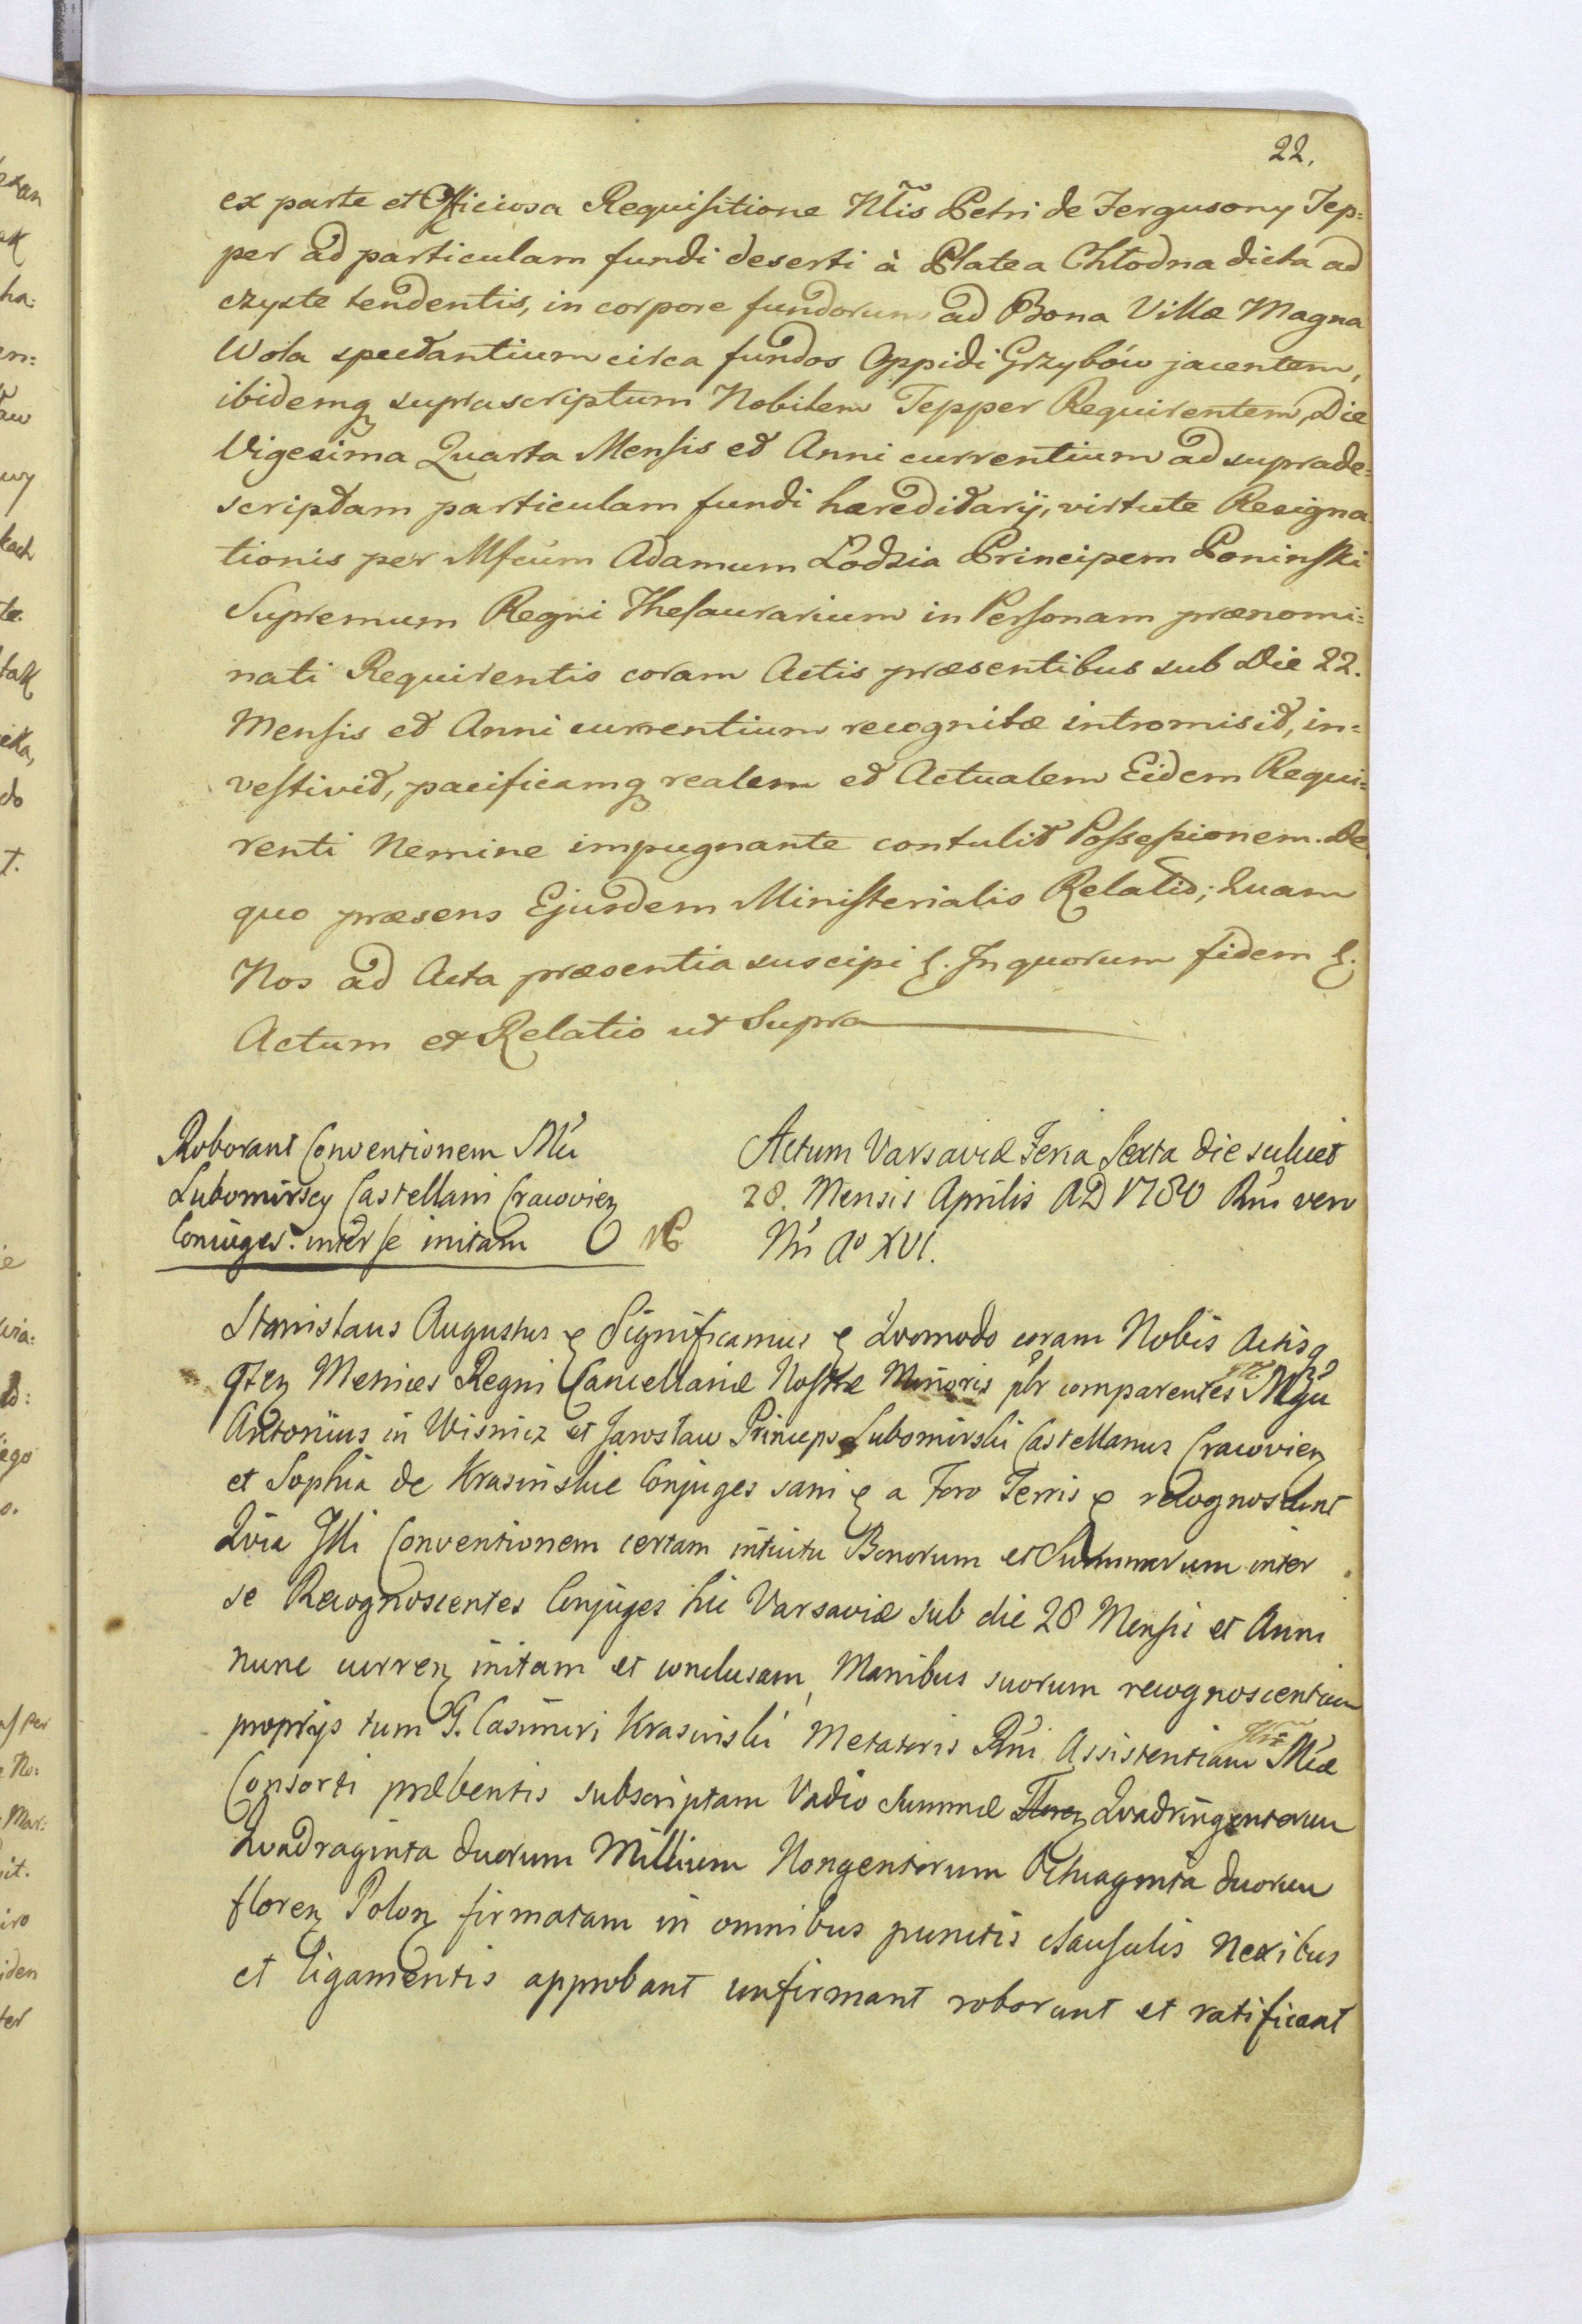 22.
ex parte et Officiosa Requisitione Nlis Petri de Fergusony Tep=
per ad particulam fundi deserti à Platea Chłodna dicta ad
czyste tendentis, in corpore fundorum ad Bona Villæ Magna
Wola spectantium circa fundos Oppidi Grzybów jacentem,
ibidemq suprascriptum Nobilem Tepper Requirentem, Die
Vigesima Quarta Mensis et Anni currentium ad suprade=
scriptam particulam fundi hæreditarij, virtute Resigna
tionis per Mfcum Adamum Łodzia Principem Poninski
Supremum Regni Thesaurarium in Personam prænomi=
nati Requirentis coram Actis præsentibus sub Die 22.
Mensis et Anni currentium recognitæ intromisit, in=
vestivit, pacificamq realem et Actualem Eidem Requi=
renti Nemine impugnante contulit Possessionem. De
quo præsens Ejusdem Ministerialis Relatio; Quam
Nos ad Acta præsentia suscipi &. In quorum fidem &.
Actum et Relatio ut Supra
Roborant Conventionem
Lubomirscy Castellani Cracovien
Conjuges inter se initam
Actum Varsaviæ Feria Sexta die scilicet
28. Mensis Aprilis AD 1780 Rni vero
Nri Ao XVI.
Stanislaus Augustus & Significamus & Quomodo coram Nobis Actisq
Metrices Regni Cancellariæ Nostræ Minoris plr comparentes
Antonius in Wisnicz et Jarosław Princeps Lubomirski Castellanus Cracovien
et Sophia de Krasinskie Conjuges sani & a Foro Terris & recognoscunt
Quia Illi Conventionem certam intuitu Bonorum et Summarum inter
se Recognoscentes Conjuges hic Varsaviæ sub die 28 Mensis et Anni
nunc curren initam et conclusam, Manibus suorum recognoscentium
proprijs tum G. Casimiri Krasinski Metatoris Rni Assistentiam
Consorti præbentis subscriptam Vadio Summæ Floren Quadringentorum
Quadraginta duorum Millium Nongentorum Octuaginta duorum
floren Polon firmatam in omnibus punctis clausulis nexibus
et ligamentis approbant confirmant roborant et ratificant